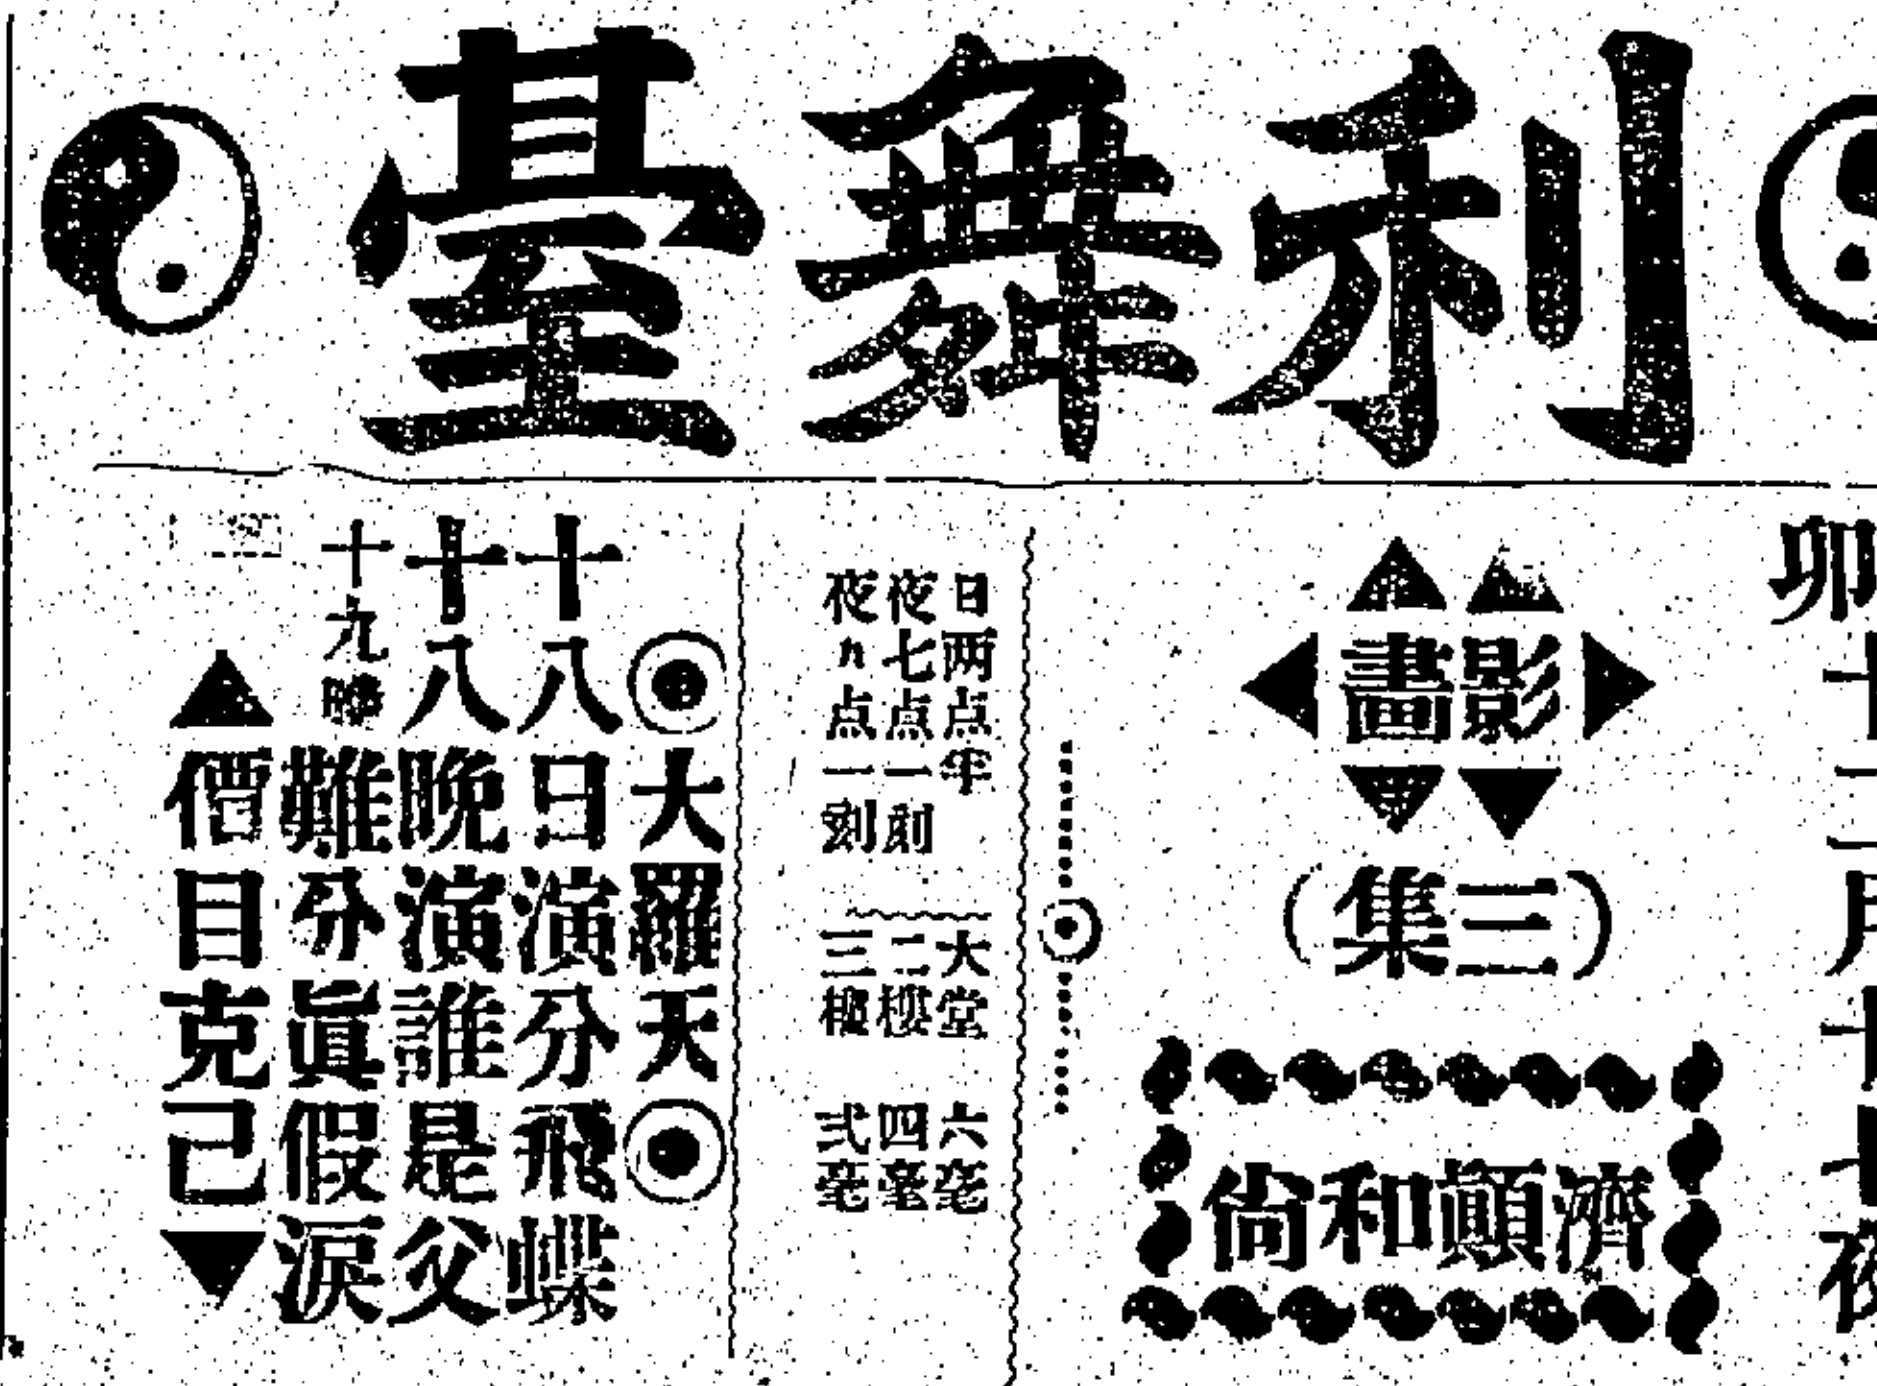 利舞臺
卯十二月十七夜
影畫
(三集)
濟顛和尙
日两点半
夜七点一刻
夜九点一刻
大堂 六毫
二樓 四毫
三樓 弍毫
大羅天
十八日演分飛蝶
十八晚演誰是父
十九晚難分眞假淚
價目克己